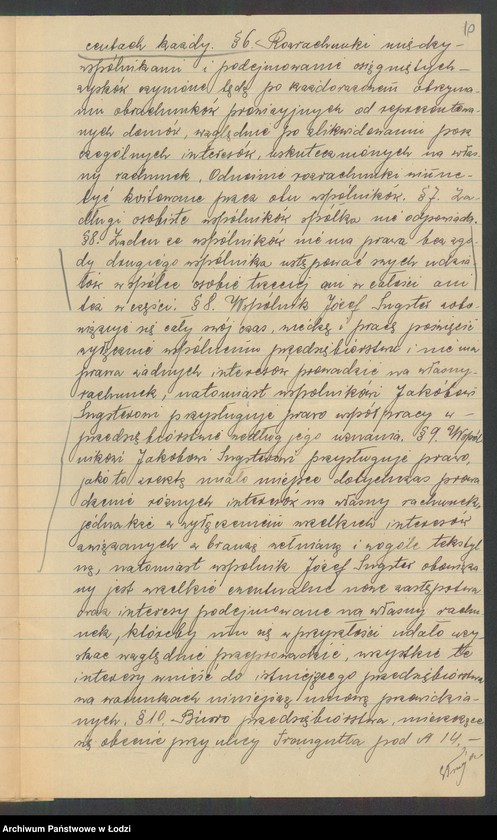 10
centach każdy. §6. Rozrachunki między-
wspólnikami i podejmowanie osiągniętych-
zysków czynione będą po każdorazowem otrzyma-
niu obrachunków prowizyjnych od reprezentowa-
nych domów, względnie po zlikwidowaniu posz
czególnych interesów, uskutecznionych na włas-
ny rachunek. Odnośne rozrachunki winne-
być kwitowane przez obu wspólników. §7. Za-
długi osobiste wspólników spółka nie odpowiada.
§8. Żaden ze wspólników nie ma prawa bez zgo-
dy drugiego wspólnika ustępować swych udzia-
łów w spółce osobie trzeciej ani w całości ani
też w części. §8. Wspólnik Józef Syngster zobo-
wiązuje się cały swój czas, wiedzę i pracę poświęcić
wyłącznie wspólnemu przedsiębiorstwu i nie ma
prawa żadnych interesów prowadzić na własny-
rachunek, natomiast wspólnikowi Jakóbowi
Syngsterowi przysługuje prawo współpracy w -
przedsiębiorstwie według jego uznania. §9. Wspól-
nikowi Jakóbowi Syngsterowi przysługuje prawo,
jak to zresztą miało miejsce dotychczas prowa
dzenie różnych interesów na własny rachunek,
jednakże z wyłączeniem wszelkich interesów
związanych z branżą wełnianą i wogóle tekstyl
ną, natomiast wspólnik Józef Syngster obowiąza
ny jest wszelkie ewentualne nowe zastępstwa
oraz interesy podejmowane na własny rachu
nek, któreby mu się w przyszłości udało uzy-
skać względnie przeprowadzić, wszystkie te
interesy wnieść do istniejącego przedsiębiorstwa
na warunkach niniejszą umową przewidzia-
nych. §10. Biuro przedsiębiorstwa, mieszczące
się obecnie przy ulicy Traugutta pod № 14, -
Archiwum Państwowe w Łodzi